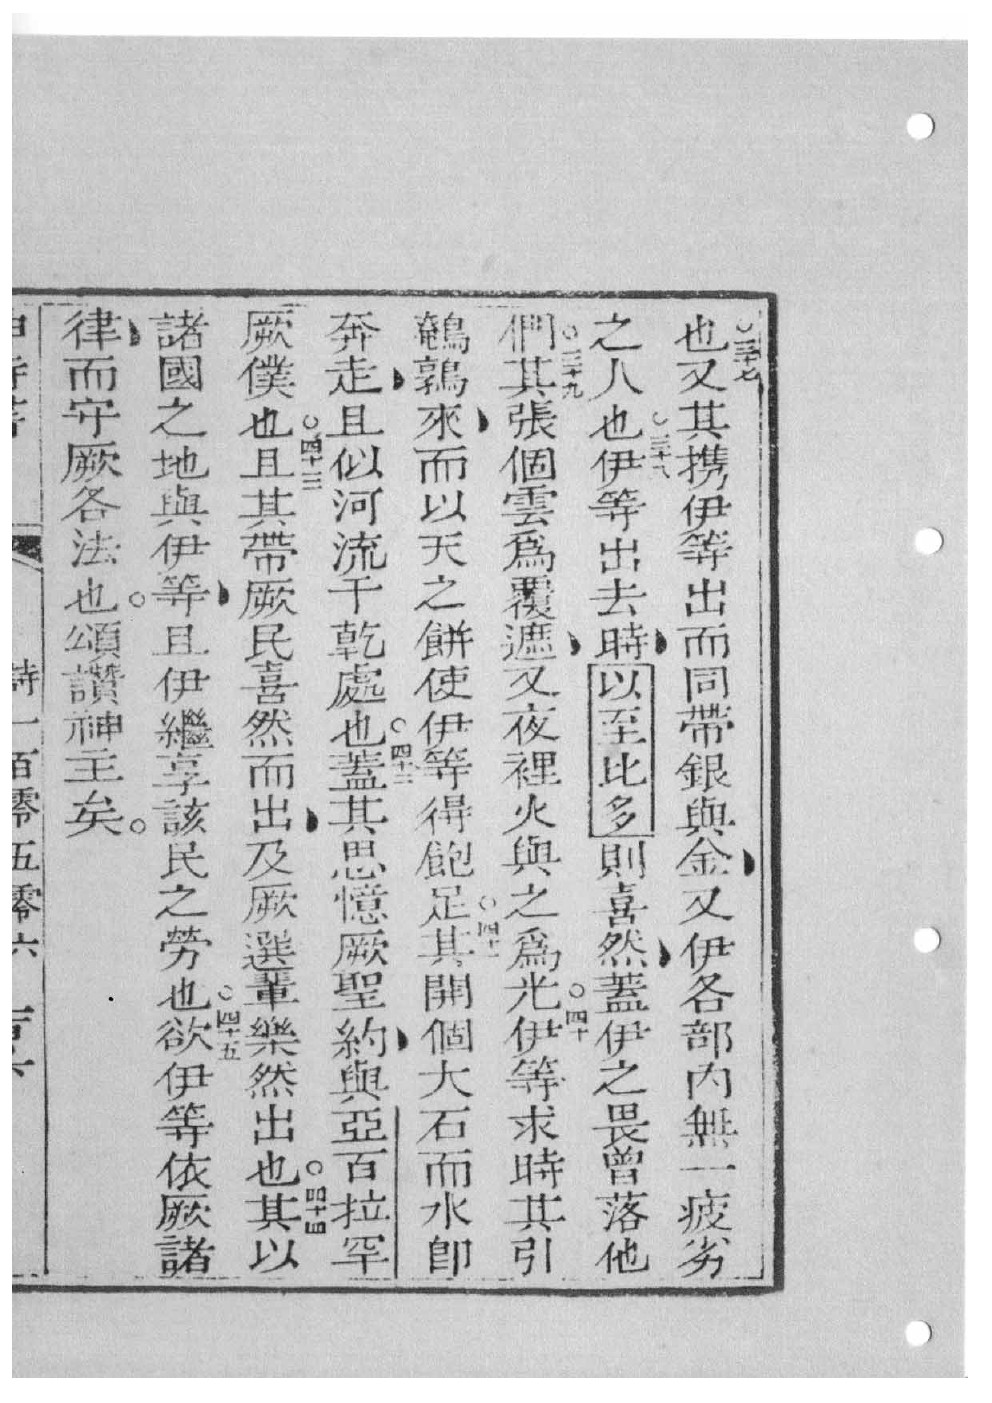 也○三十七又其携伊等出而同帶銀與金又伊各部內無一疲劣
之人也○三十八伊等出去時以至比多則喜然蓋伊之畏曾落他
們○三十九其張個雲爲覆遮又夜裡火與之爲光○四十伊等求時其引
鵪鶉來而以天之餅使伊等得飽足○四十一其開個大石而水卽
奔走且似河流于乾處也○四十二蓋其思憶厥聖約與亞百拉罕
厥僕也○四十三且其帶厥民喜然而出及厥選輩樂然出也○四十四其以
諸國之地與伊等且伊繼享該民之勞也○四十五欲伊等依厥諸
律而守厥各法也○頌讚神主矣○
詩一百零五零六